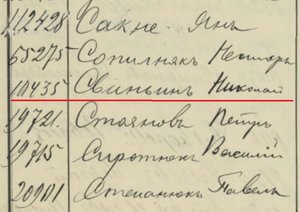 112428 Сакне Янъ
55275 Сопильнякъ Несторъ
10435 Свиньинъ Николай
19721. Стояновъ Петръ
19715 Сиротюкъ Василій
20901 Степанюкъ Павелъ